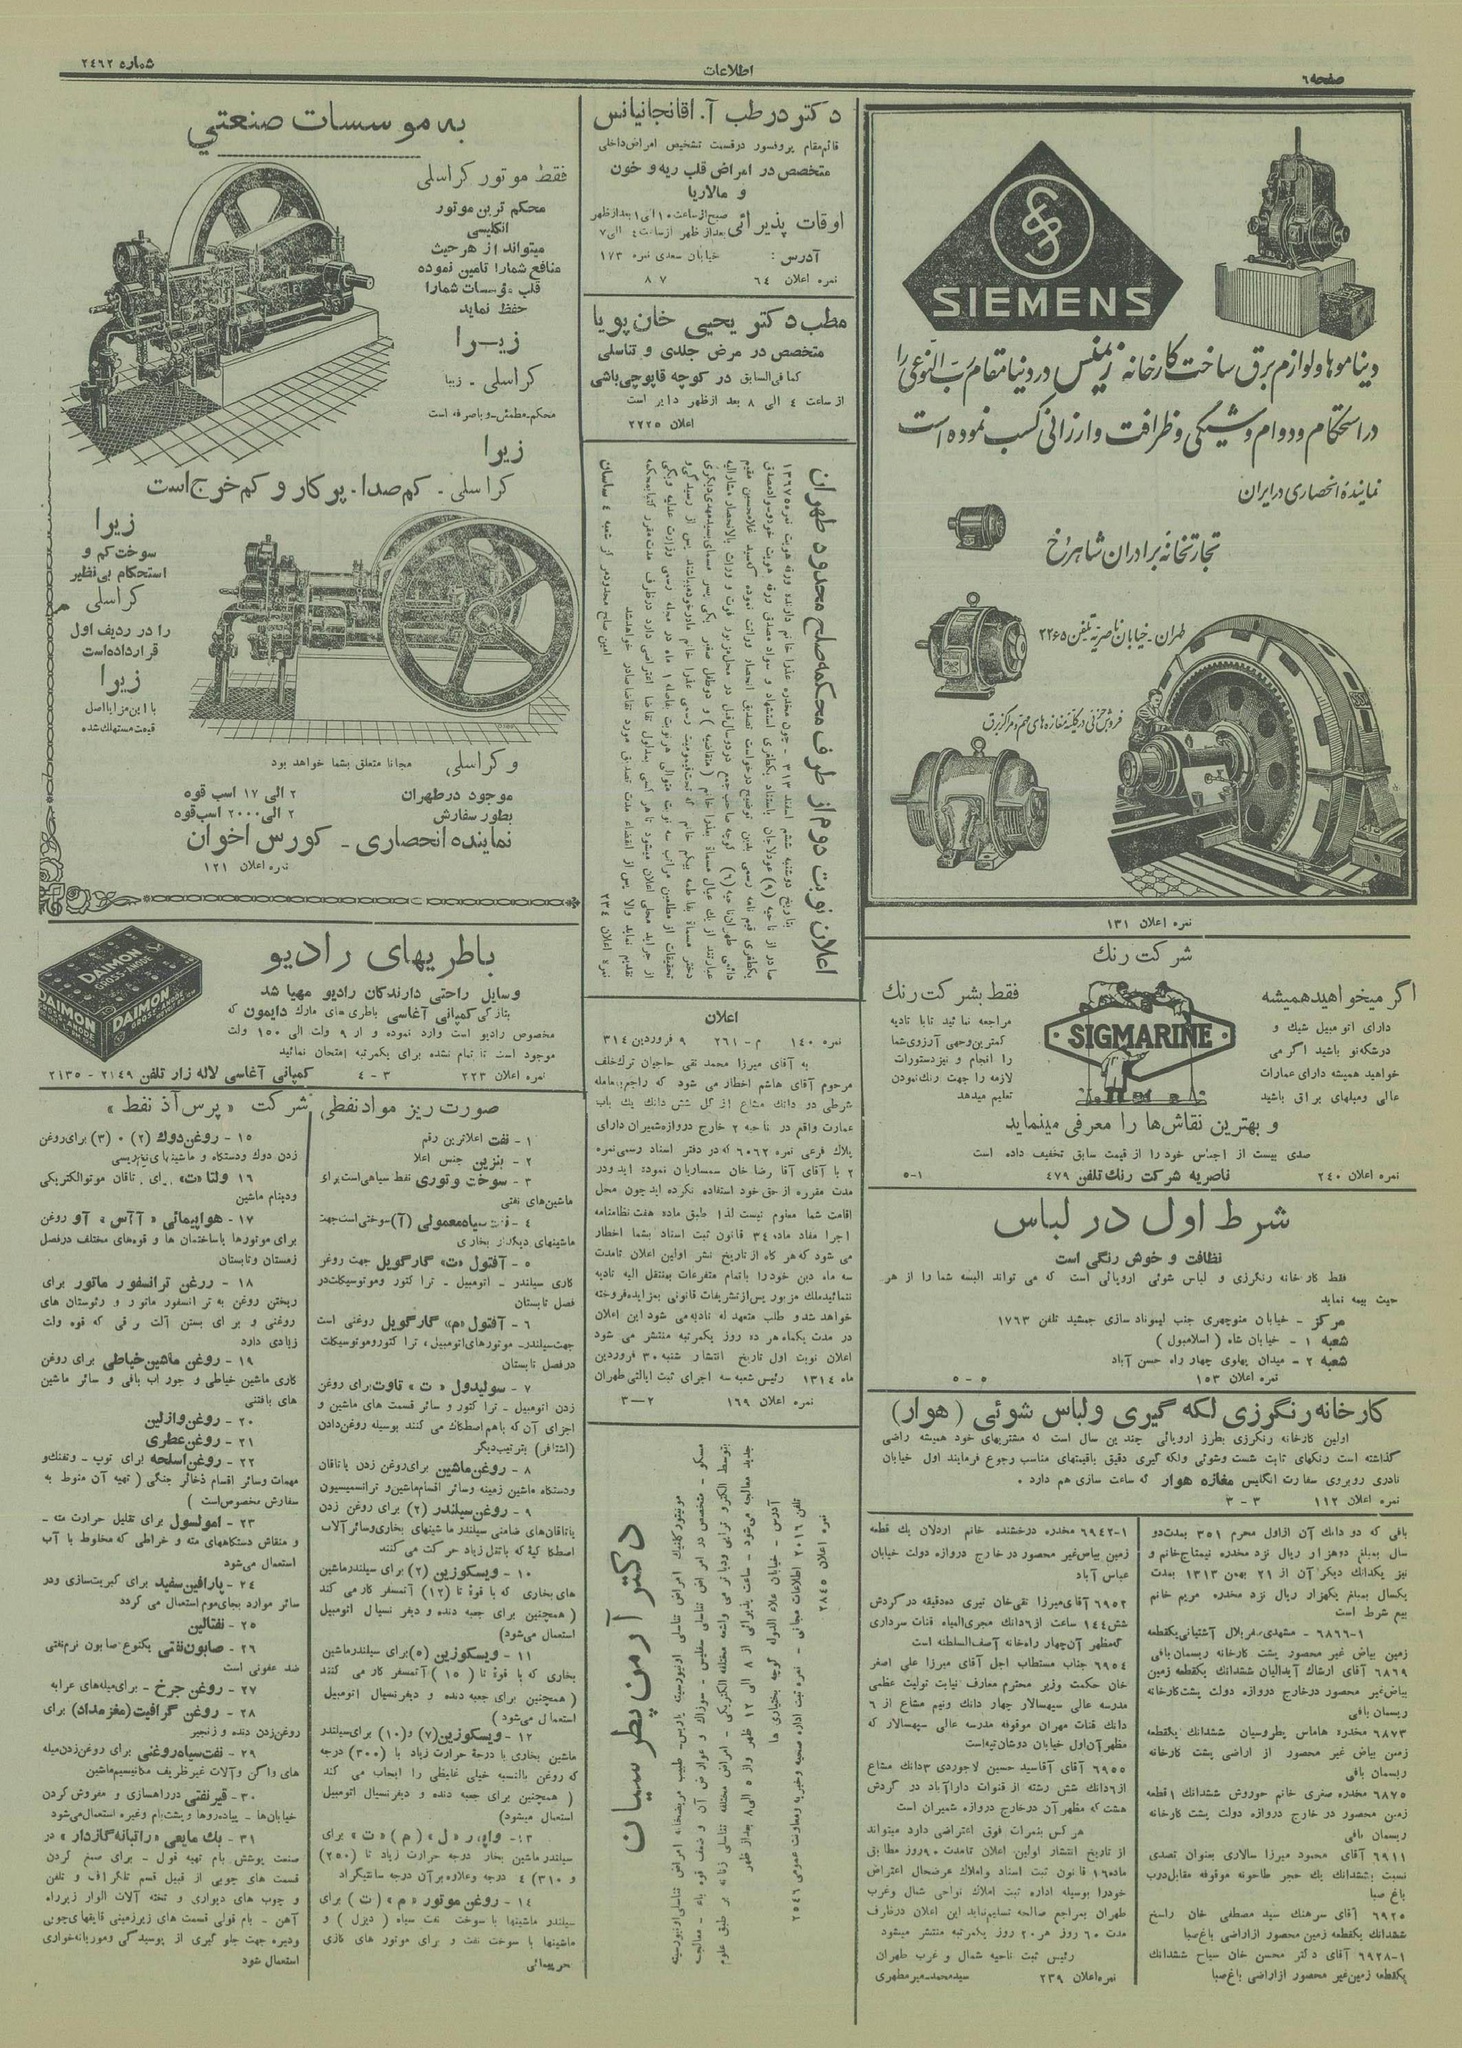 صفحه ۶
اطلاعات
شماره ۲۴۶۲
SIEMENS
دیناموها و لوازم برق ساخت کارخانه زیمنس در دنیا مقام رب النوعی را
در استحکام و دوام و شیکی و ظرافت و ارزانی کسب نموده است
نماینده انحصاری در ایران
تجارتخانه برادران شاهرخ
طهران - خیابان ناصریه تلفن ۲۲۶۵
فروش جزئی در کلیه مغازه های مهم و مراکز برق
نمره اعلان ۱۳۱
شرکت رنگ
اگر میخواهید همیشه
دارای اتومبیل شیک و
درشکه نو باشید اگر می
خواهید همیشه دارای عمارات
عالی و مبلهای براق باشید
SIGMARINE
فقط بشرکت رنگ
مراجعه نمائید تا با تادیه
کمترین وجهی آرزوی شما
را انجام و نیز دستورات
لازمه را جهت رنگ نمودن
تعلیم میدهد
و بهترین نقاش ها را معرفی مینماید
صدی بیست از اجناس خود را از قیمت سابق تخفیف داده است
نمره اعلان ۲۴۰ ناصریه شرکت رنگ تلفن ۴۷۹ ۱-۵
شرط اول در لباس
نظافت و خوش رنگی است
فقط کارخانه رنگرزی و لباس شوئی اروپائی است که می تواند البسه شما را از هر
حیث بیمه نماید
مرکز - خیابان منوچهری جنب لیموناد سازی جمشید تلفن ۱۷۶۳
شعبه ۱ - خیابان شاه (اسلامبول)
شعبه ۲ - میدان پهلوی چهار راه حسن آباد
نمره اعلان ۱۵۳ ۵-۵
کارخانه رنگرزی لکه گیری و لباس شوئی (هوار)
اولین کارخانه رنگرزی بطرز اروپائی چندین سال است که مشتریهای خود همیشه راضی
گذاشته است رنگهای ثابت شست و شوئی و لکه گیری دقیق باقیمتهای مناسب رجوع فرمایند اول خیابان
نادری روبروی سفارت انگلیس مغازه هوار که ساعت سازی هم دارد .
نمره اعلان ۱۱۲ ۳-۳
باقی که دو دانک آن از اول محرم ۳۵۱ بمدت دو
سال بمبلغ دو هزار ریال نزد مخدره نیمتاج خانم و
نیز یکدانک دیگر آن از ۲۱ بهمن ۱۳۱۳ بمدت
یکسال بمبلغ یکهزار ریال نزد مخدره مریم خانم
بیع شرط است
۶۸۶۶-۱ - مشهدی صفر بلال آشتیانی یکقطعه
زمین بیاض غیر محصور پشت کارخانه ریسمان بافی
۶۸۶۹ آقای ارشاک آیدالیان ششدانک یکقطعه زمین
بیاض غیر محصور در خارج دروازه دولت پشت کارخانه
ریسمان بافی
۶۸۷۳ مخدره هاماس بطروسیان ششدانک یکقطعه
زمین بیاض غیر محصور از اراضی پشت کارخانه
ریسمان بافی
۶۸۷۵ مخدره صغری خانم خوروش ششدانک ۱ قطعه
زمین محصور در خارج دروازه دولت پشت کارخانه
ریسمان بافی
۶۹۱۱ آقای محمود میرزا سالاری بعنوان تصدی
نسبت بششدانک یک حجر طاحونه موقوفه مقابل درب
باغ صبا
۶۹۲۵ آقای سرهنک سید مصطفی خان راسخ
ششدانک یکقطعه زمین محصور از اراضی باغ صبا
۶۹۲۸-۱ آقای دکتر محسن خان سیاح ششدانک
یکقطعه زمین غیر محصور از اراضی باغ صبا
۶۹۴۲-۱ مخدره درخشنده خانم اردلان یک قطعه
زمین بیاض غیر محصور در خارج دروازه دولت خیابان
عباس آباد
۶۹۵۲ آقای میرزا نقی خان تیری ده دقیقه در گردش
شش ۱۴۴ ساعت از ۶ دانک مجری المیاه قنات سرداری
که مظهر آن چهار راه خانه آصف السلطنه است
۶۹۵۴ جناب مستطاب اجل آقای میرزا علی اصغر
خان حکمت وزیر محترم معارف نیابت تولیت عظمی
مدرسه عالی سپهسالار چهار دانک ونیم مشاع از ۶
دانک قنات مهران موقوفه مدرسه عالی سپهسالار که
مظهر آن اول خیابان دوشان تپه است
۶۹۵۵ آقای آقا سید حسین لاجوردی ۳ دانک مشاع
از ۶ دانک شش رشته از قنوات دارا آباد در گردش
هشت که مظهر آن در خارج دروازه شمیران است
هر کس بنمرات فوق اعتراضی دارد میتواند
از تاریخ انتشار اولین اعلان تا مدت ۹۰ روز مطابق
ماده ۱۶ قانون ثبت اسناد و املاک عرضحال اعتراض
خود را بوسیله اداره ثبت املاک نواحی شمال و غرب
طهران بمراجع صالحه تسلیم نماید این اعلان در ظرف
مدت ۶۰ روز هر ۲۰ روز یکمرتبه منتشر میشود
رئیس ثبت ناحیه شمال و غرب طهران
نمره اعلان ۲۳۹ سید محمد - میر مطهری
دکتر در طب آ. آقانجانیانس
قائم مقام پروفسور در قسمت تشخیص امراض داخلی
متخصص در امراض قلب ریه و خون
و مالاریا
اوقات پذیرائی صبح از ساعت ۱۰ الی ۱ بعد از ظهر
بعد از ظهر از ساعت ۴ الی ۷
آدرس : خیابان سعدی نمره ۱۷۳
نمره اعلان ۶۴ ۷ ۸
مطب دکتر یحیی خان پویا
متخصص در مرض جلدی و تناسلی
کما فی السابق در کوچه قاپوچی باشی
از ساعت ۴ الی ۸ بعد از ظهر دایر است
اعلان ۲۲۲۵
اعلان نوبت دوم از طرف محکمه صلح محدود طهران
بتاریخ دوشنبه ششم اسفند ۳۱۳ - چون مخدره عذرا خانم دارنده ورقه هویت نمره ۱۳۶۷۵
امین صلح محدود مر از شعبه ۴ ساسان
نمره اعلان ۲۳۴
اعلان
نمره ۱۴۰ م - ۲۶۱ ۹ فروردین ۳۱۴
به آقای میرزا محمد تقی حاجیان ترک خلف
مرحوم آقای هاشم اخطار می شود که راجع بمعامله
شرطی دو دانک مشاع از کل شش دانک یک باب
عمارت واقع در ناحیه ۲ خارج دروازه شمیران دارای
پلاک فرعی نمره ۶۰۶۲ که در دفتر اسناد رسمی نمره
۲ با آقای آقا رضا خان سمساریان نموده اید و در
مدت مقرره از حق خود استفاده نکرده اید چون محل
اقامت شما معلوم نیست لذا طبق ماده هفت نظامنامه
اجرا مفاد ماده ۳۴ قانون ثبت اسناد بشما اخطار
می شود که هر گاه از تاریخ نشر اولین اعلان تا مدت
سه ماه دین خود را با تمام متفرعات بمنتقل الیه تادیه
ننمائید ملک مزبور پس از تشریفات قانونی بمزایده فروخته
خواهد شد و طلب متعهد له تادیه می شود این اعلان
در مدت یکماه هر ده روز یکمرتبه منتشر می شود
اعلان نوبت اول تاریخ انتشار شنبه ۳۰ فروردین
ماه ۱۳۱۴ رئیس شعبه سه اجرای ثبت ایالتی طهران
نمره اعلان ۱۶۹ ۲-۳
دکتر آرمن پطرسیان
جدید معالجه می شود - ساعت پذیرائی از ۸ الی ۱۲ ظهر و از ۵ الی ۸ بعد از ظهر
آدرس - خیابان علاء الدوله کوچه بختیاری ها
تلفن ۲۰۱۶ اطلاعات مجانی - نمره ثبت اداره صحیه و خیریه و معاونت عمومی ۲۵۴۶
نمره اعلان ۲۸۴۵
به موسسات صنعتی
فقط موتور کراسلی
محکم ترین موتور
انگلیسی
میتواند از هر حیث
منافع شما را تامین نموده
قلب مؤسسات شما را
حفظ نماید
زیرا
کراسلی - زیبا
محکم - مطمئن - و با صرفه است
زیرا
کراسلی - کم صدا - پر کار و کم خرج است
زیرا
سوخت کم و
استحکام بی نظیر
کراسلی
را در ردیف اول
قرار داده است
زیرا
با این مزایا اصل
قیمت مستهلک شده
و کراسلی مجانا متعلق بشما خواهد بود
موجود در طهران ۲ الی ۱۷ اسب قوه
بطور سفارش ۲ الی ۲۰۰۰ اسب قوه
نماینده انحصاری - کورس اخوان
نمره اعلان ۱۲۱
باطریهای رادیو
DAIMON
GROSS-ANODE
DAIMON
DAIMON
وسایل راحتی دارندگان رادیو مهیا شد
بتازگی کمپانی آغاسی باطری های مارک دایمون که
مخصوص رادیو است وارد نموده و از ۹ ولت الی ۱۵۰ ولت
موجود است تا تمام نشده برای یکمرتبه امتحان نمائید
نمره اعلان ۲۲۳ ۳-۴ کمپانی آغاسی لاله زار تلفن ۲۱۴۹ - ۲۱۳۵
صورت ریز مواد نفطی شرکت «پرس آذ نفط»
۱ - نفت اعلاترین رقم
۲ - بنزین جنس اعلا
۳ - سوخت وتوری نفط سیاهی است برای
ماشین های نفتی
۴ - نفت سیاه معمولی (آ) سوختی است جهت
ماشینهای دیگدار بخاری
۵ - آفتول «ت» گارگویل جهت روغن
کاری سیلندر - اتومبیل - تراکتور و موتوسیکلت در
فصل تابستان
۶ - آفتول «م» گارگویل روغنی است
جهت سیلندر - موتورهای اتومبیل، تراکتور و موتوسیکلت
در فصل تابستان
۷ - سولیدول «ت» تاوت برای روغن
زدن اتومبیل - تراکتور و سائر قسمت های ماشین و
اجزای آن که باهم اصطکاک می کنند بوسیله روغن دادن
(اشتافر) یا ترتیب دیگر
۸ - روغن ماشین برای روغن زدن یاتاقان
ودستگاه ماشین زمینه وسائر اقسام ماشین و ترانسمیسیون
۹ - روغن سیلندر (۲) برای روغن زدن
یاتاقان های ضامنی سیلندر ماشینهای بخاری و سائر آلات
اصطکاکیه که با ثقل زیاد حرکت می کنند
۱۰ - ویسکوزین (۲) برای سیلندر ماشین
های بخاری که با قوهٔ تا (۱۲) آتمسفر کار می کند
(همچنین برای جعبه دنده و دیفرنسیال اتومبیل
استعمال می شود)
۱۱ - ویسکوزین (۵) برای سیلندر ماشین
بخاری که با قوهٔ تا (۱۵) آتمسفر کار می کنند
(همچنین برای جعبه دنده و دیفرنسیال اتومبیل
استعمال می شود)
۱۲ - ویسکوزین (۷) و (۱۰) برای سیلندر
ماشین بخاری با درجهٔ حرارت زیاد تا (۳۰۰) درجه
که روغن بالنسبه خیلی غلیظی را ایجاب می کند
(همچنین برای جعبه دنده و دیفرنسیال اتومبیل
استعمال میشود)
۱۳ - واپور «ل» (م) «ت» برای
سیلندر ماشین بخار درجه حرارت زیاد تا (۲۵۰)
و ۳۱۰) درجه وعلاوه بر آن درجه سانتیگراد
۱۴ - روغن موتور «م» (ت) برای
سیلندر ماشینها با سوخت نفت سیاه (دیزل) و
ماشینها با سوخت نفت و برای موتور های گازی
۱۵ - روغن دوک (۲) و (۳) برای روغن
زدن دوک ودستگاه و ماشینهای نخریسی
۱۶ ولتا «ت» برای یاتاقان موتور الکتریکی
ودینام ماشین
۱۷ - هواپیمائی «آآس» آو روغن
برای موتورها با ساختمان ها و قوه های مختلف در فصل
زمستان و تابستان
۱۸ - روغن ترانسفورماتور برای
ریختن روغن به ترانسفورماتور و رئوستان های
روغنی و برای بستن آلت برقی که قوه ولت
زیادی دارد
۱۹ - روغن ماشین خیاطی برای روغن
کاری ماشین خیاطی و جوراب بافی و سائر ماشین
های بافتنی
۲۰ - روغن وازلین
۲۱ - روغن عطری
۲۲ - روغن اسلحه برای توپ - وتفنک و
مهمات وسائر اقسام ذخائر جنگی (تهیه آن منوط به
سفارش مخصوص است)
۲۳ - امولسول برای تقلیل حرارت مته -
و منقاش دستگاههای مته و خراطی که مخلوط با آب
استعمال می شود
۲۴ - پارافین سفید برای کبریت سازی و در
سائر موارد بجای موم استعمال می گردد
۲۵ - نفتالین
۲۶ - صابون نفتی یکنوع صابون نرم نفتی
ضد عفونی است
۲۷ - روغن چرخ - برای میله های عرابه
۲۸ - روغن گرافیت (مغز مداد) برای
روغن زدن دنده و زنجیر
۲۹ - نفت سیاه روغنی برای روغن زدن میله
های واگن و آلات غیر ظریف مکانیسم ماشین
۳۰ - قیر نفتی در راهسازی و مفروش کردن
خیابان ها - پیاده روها و پشت بام وغیره استعمال می شود
۳۱ - یک مایعی «راتبانه گازدار» در
صنعت پوشش بام تهیه فول - برای صمغ کردن
قسمت های چوبی از قبیل قسم تلگراف و تلفن
و چوب های دیواری و تخته آلات الوار زیر راه
آهن - بام قولی قسمت های زیرزمینی قایقهای چوبی
وغیره جهت جلوگیری از پوسیدگی و موریانه خواری
استعمال شود